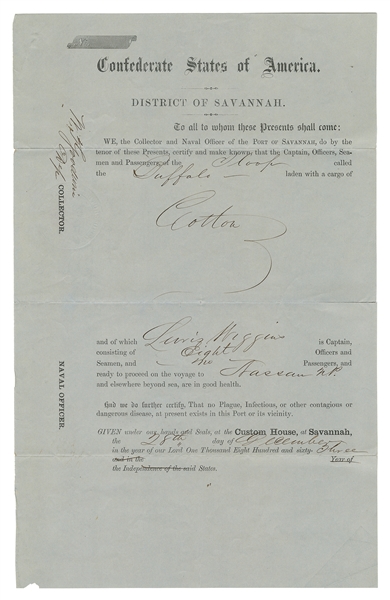 Confederate States of America.
DISTRICT OF SAVANNAH.
To all to whom these Presents shall come:
WE, the Collector and Naval Officer of the PORT OF SAVANNAH, do by the
tenor of these Presents, certify and make known, that the Captain, Officers, Sea-
men and Passengers, of the Sloop called
the Buffalo laden with a cargo of
Cotton
and of which Lewis Wiggins is Captain,
consisting of Eight Officers and
Seamen, and no Passengers, and
ready to proceed on the voyage to Nassau N.P.
and elsewhere beyond sea, are in good health.
And we do further certify, That no Plague, Infectious, or other contagious or
dangerous disease, at present exists in this Port or its vicinity.
GIVEN under our hands and Seals, at the Custom House, at Savannah,
the 28th day of December
in the year of our Lord One Thousand Eight Hundred and sixty-three
and in the Year of
the Independence of the said States.
COLLECTOR.
NAVAL OFFICER.